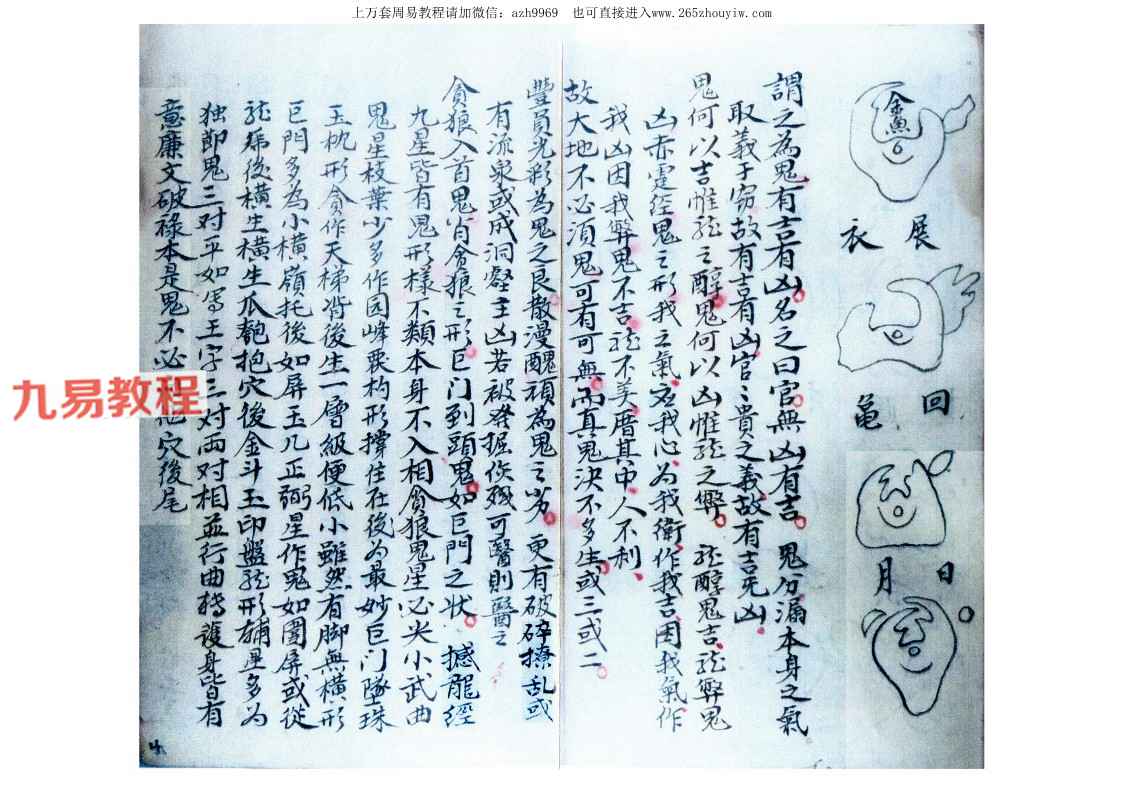 上万套周易教程请加微信：azh9969　也可直接进入www.265zhouyiw.com
金魚
展衣
回龜
日月
謂之為鬼有吉有凶名之曰官無凶有吉鬼分漏本身之氣
取義于窃故有吉有凶官之貴之義故有吉旡凶
鬼何以吉惟龍之醇鬼何以凶惟龍之弊　龍醇鬼吉龍弊鬼
凶赤霆經鬼之形我之氣應我心為我衛作我吉因我氣作
我凶因我弊鬼不吉龍不美厝其中人不利
故大地不必須鬼可有可無而真鬼決不多生或三或二
豐員光彩為鬼之良散漫醜頑為鬼之劣　更有破碎撩乱或
有流泉或成洞壑主凶若被發掘傷殘可醫則醫之
貪狼入首鬼肖貪狼之形巨门到頭鬼如巨門之状　撼龍經
九星皆有鬼形樣不類本身不入相貪狼鬼星必尖小武曲
鬼星枝葉少多作圆峰覂杓形撑住在後為最妙巨门墜珠
玉枕形貪作天梯背後生一層級便低小雖然有脚無横形
巨門多為小橫嶺托後如屏玉几正弼星作鬼如圍屏或從
龍帶後橫生橫生瓜瓠抱穴後金斗玉印盤龍形輔星多為
独即鬼三对平如寫王字三对両对相並行曲轉護身皆有
意廉文破祿本是鬼不必穴後尾
九易教程